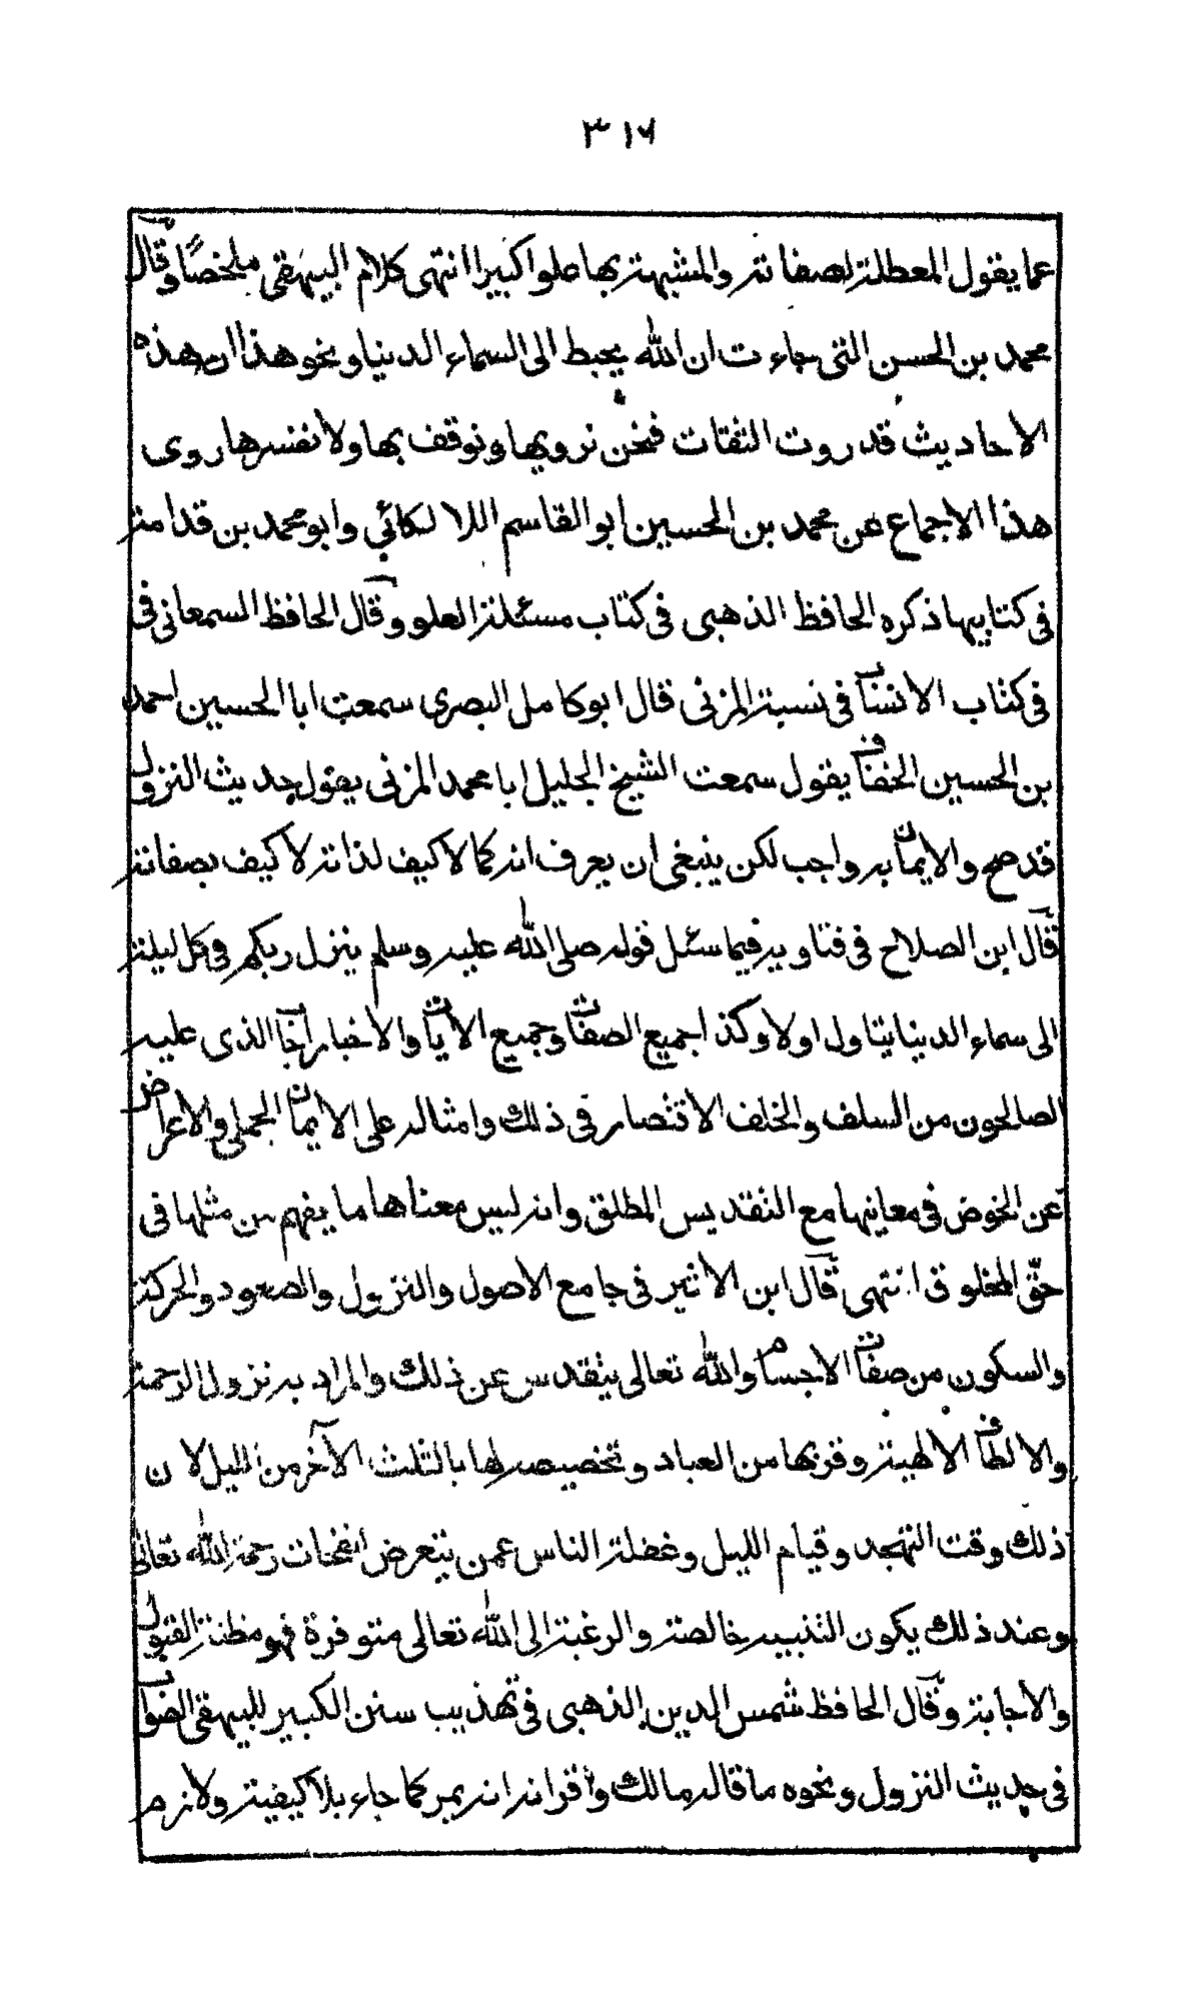 ٣١٦
عما يقول المعطلة لصفاته والمشبهة بها علوا كبيرا انتهى كلام البيهقي ملخصًا وقال
محمد بن الحسن التي جاءت ان الله يهبط الى السماء الدنيا ونحو هذا ان هذه
الاحاديث قد روت الثقات فنحن نرويها ونوقف بها ولا نفسرها روى
هذا الاجماع عن محمد بن الحسين ابو القاسم اللالكائي وابو محمد بن قدامة
في كتابيها ذكره الحافظ الذهبي في كتاب مسئلة العلو وقال الحافظ السمعاني في
في كتاب الانساب في نسبة المزني قال ابو كامل البصري سمعت ابا الحسين احمد
بن الحسين الخفاف يقول سمعت الشيخ الجليل ابا محمد المزني يقول حديث النزول
قد صح والايمان به واجب لكن ينبغي ان يعرف انه كما لا كيف لذاته لا كيف بصفاته
قال ابن الصلاح في فتاويه فيما سئل قوله صلى الله عليه وسلم ينزل ربكم في كل ليلة
الى سماء الدنيا يتاول اولا وكذا جميع الصفات وجميع الايات والاخبار اجاب الذي عليه
الصالحون من السلف والخلف الاقتصار في ذلك وامثاله على الايمان الجملي والاعراض
عن الخوض في معانيها مع التقديس المطلق وانه ليس معناها ما يفهم من مثلها في
حقّ المخلوق انتهى قال ابن الاثير في جامع الاصول والنزول والصعود والحركة
والسكون من صفات الاجسام والله تعالى يتقدس عن ذلك والمراد به نزول الرحمة
والالطاف الالهية وقربها من العباد وتخصيصه لها بالثلث الآخر من الليل لان
ذلك وقت التهجد وقيام الليل وغفلة الناس عمن يتعرض لنفحات رحمة الله تعالى
وعند ذلك يكون التنبيه خالصة والرغبة الى الله تعالى متوفرة فهو مظنة القبول
والاجابة وقال الحافظ شمس الدين الذهبي في تهذيب سنن الكبير للبيهقي الصواب
في حديث النزول ونحوه ما قاله مالك واقرانه انه يمر كما جاء بلا كيفية ولازم